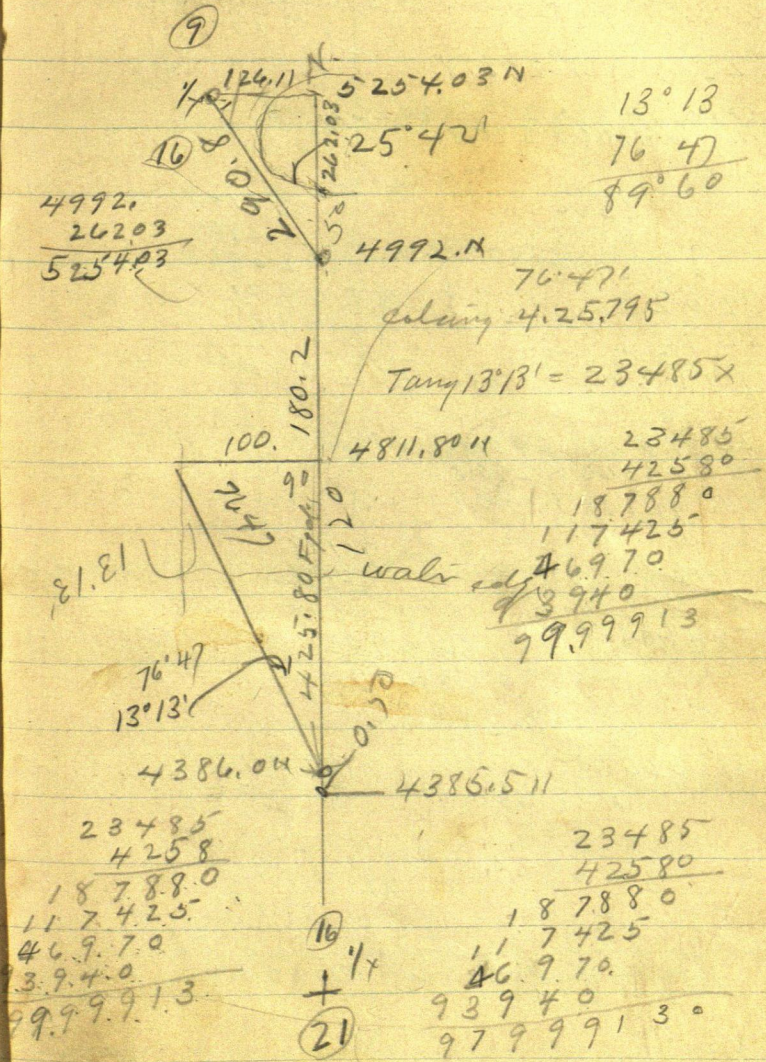 9
N
126.11
5254.03 N
1/x
13° 13
76 47
89° 60
262.03
25° 42'
16
290.8
50
4992.
262.03
5254.03
4992.N
76° 47'
4.25.795
Tang 13° 13' = 23485x
180.2
100.
4811.80 N
23485
42580
18788 0
117425
46970
93940
99.99913
90
120
425.80
13° 13'
76° 47
13° 13'
4386.0 N
0.50
4385.5 N
23485
4258
18 788.0
117425
46970
93940
99.99913
23485
42580
187880
117425
46970
93940
97999130
16
1/x
21